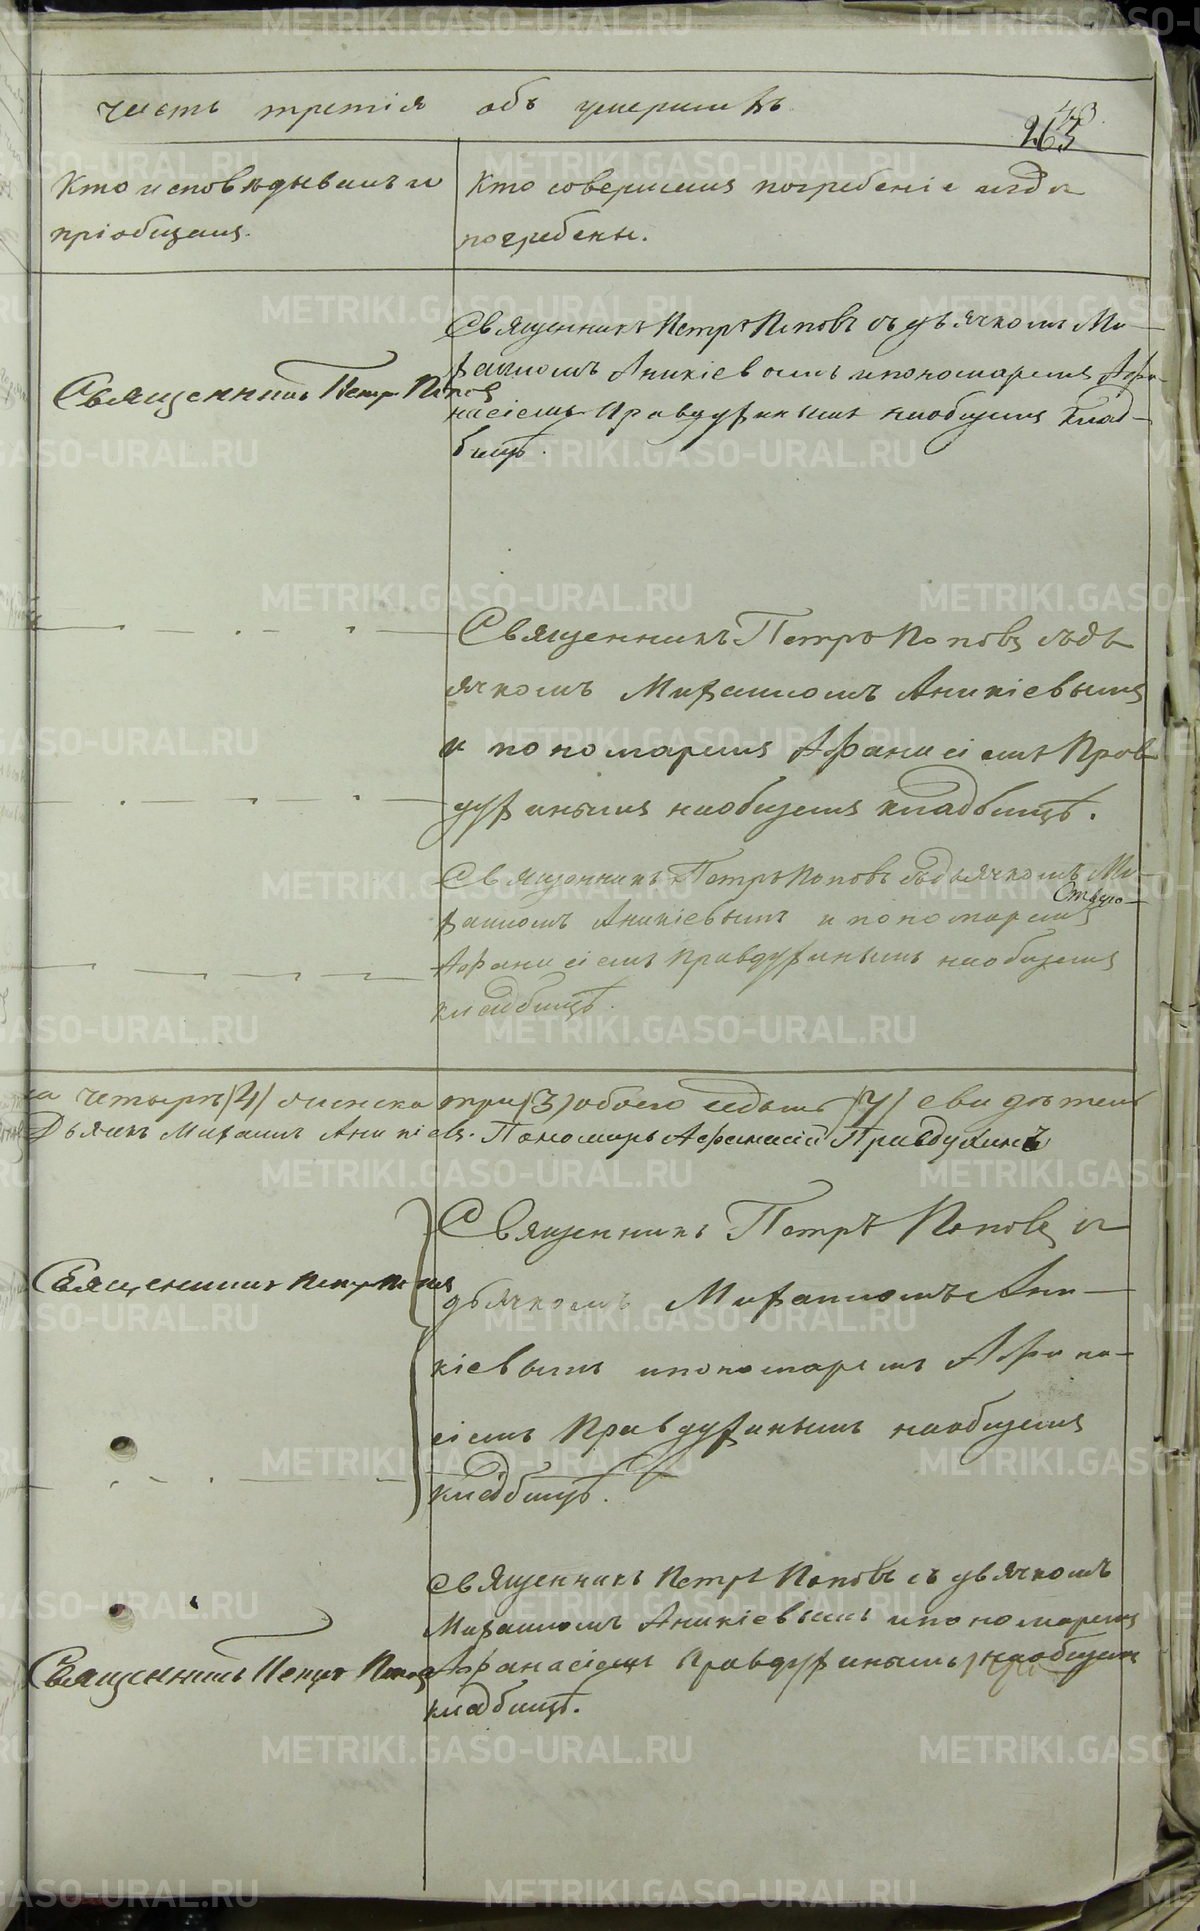 часть третія объ умершихъ
263
43
Кто исповѣдывалъ и
пріобщалъ.
Кто совершалъ погребеніе и гдѣ
погребены.
Священникъ Петръ Попов
Священникъ Петръ Поповъ съ дьячкомъ Ми-
хаиломъ Аникіевымъ и пономаремъ Афа-
насіемъ Правдухинымъ на общемъ клад-
бищѣ.
Священникъ Петръ Поповъ съ дь-
ячкомъ Михаиломъ Аникіевымъ
и пономаремъ Афанасіемъ Прав
духинымъ на общемъ кладбищѣ.
Священникъ Петръ Поповъ съ дьячкомъ Ми-
хаиломъ Аникіевымъ и пономаремъ
Афанасіемъ Правдухинымъ на общемъ
кладбищѣ.
четыре (4) женска три (3) обоего седмь (7) свидѣтел
Дьячекъ Михаилъ Аникіевъ. Пономарь Афанасій Правдухинъ
Священникъ Петръ Попов
Священникъ Петръ Поповъ съ
дьячкомъ Михаиломъ Ани-
кіевымъ и пономаремъ Афана-
сіемъ Правдухинымъ на общемъ
кладбищѣ.
Священникъ Петръ Попов
Священникъ Петръ Поповъ съ дьячкомъ
Михаиломъ Аникіевымъ и пономаремъ
Афанасіемъ Правдухинымъ, на общемъ
кладбищѣ.
METRIKI.GASO-URAL.RU